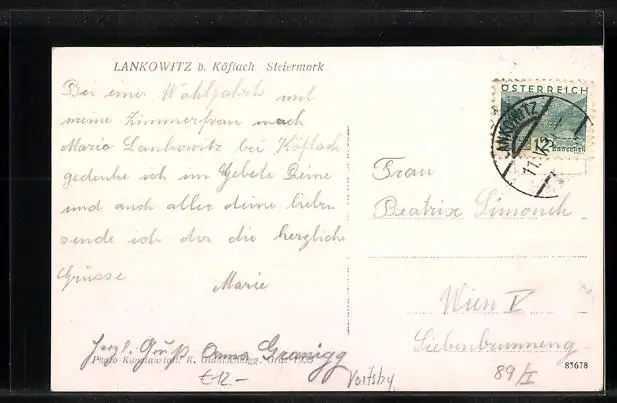 LANKOWITZ b. Köflach Steiermark
Bei einer Wahlfahrt mit
meine Zimmerfrau nach
Maria Lankowitz bei Köflach
gedenke ich im Gebete Deine
und auch aller deine lieben
sende ich dir die herzliche
Grüsse
Marie
Herzl. Gruß Anna Granigg
Photo Kunstanstalt K. Graz
€ 12.-
Voitsby
ÖSTERREICH
12 GROSCHEN
LANKOWITZ
11.
Frau
Beatrix Simonek
Wien V
Siebenbrunneng
89/I
85678